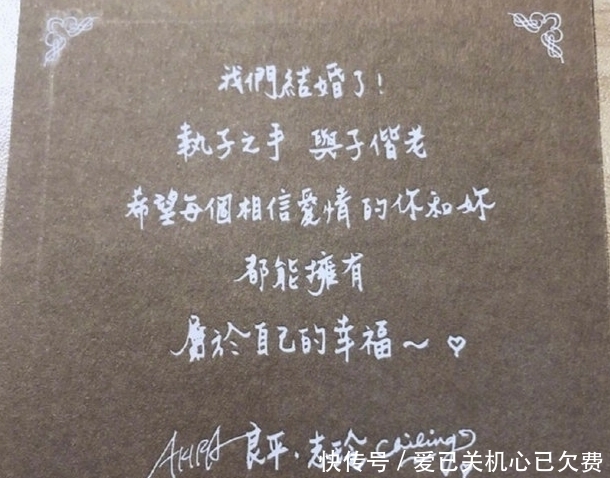 我們結婚了!
執子之手 與子偕老
希望每個相信愛情的你和妳
都能擁有
屬於自己的幸福~♡
AKIRA 良平. 志玲 Chiling
快传号 / 爱已关机心已欠费